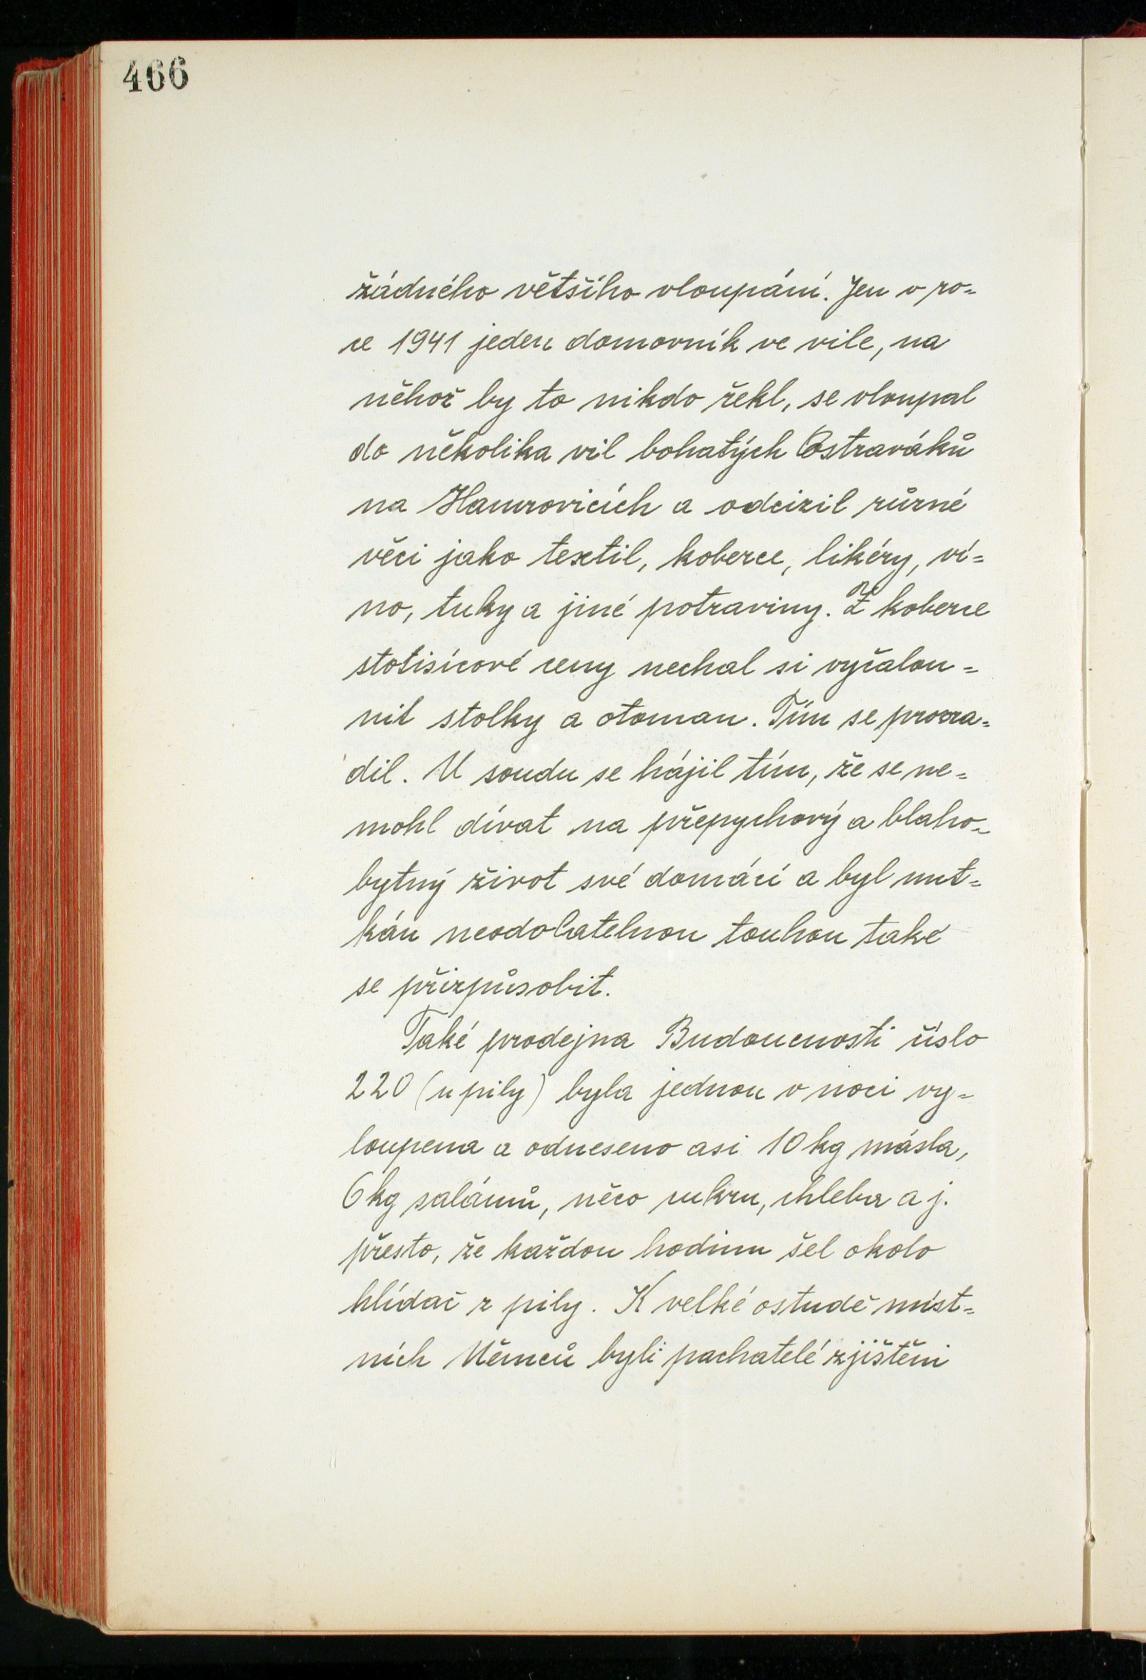 466
žádného většího vloupání. Jen v ro=
ce 1941 jeden domovník ve vile, na
něhož by to nikdo řekl, se vloupal
do několika vil bohatých Ostraváků
na Hamrovicích a odcizil různé
věci jako textil, koberce, likéry, ví=
no, tuky a jiné potraviny. Z koberce
stotisícové ceny nechal si vyčalou=
nit stolky a otoman. Tím se prozra=
dil. U soudu se hájil tím, že se ne=
mohl dívat na přepychový a blaho=
bytný život své domácí a byl nut=
kán neodolatelnou touhou také
se přizpůsobit.
Také prodejna Budoucnosti číslo
220 (u pily) byla jednou v noci vy=
loupena a odneseno asi 10 kg másla,
6 kg salámů, něco cukru, chleba a j.
přesto, že každou hodinu šel okolo
hlídač z pily. K velké ostudě míst=
ních Němců byli pachatelé zjištěni